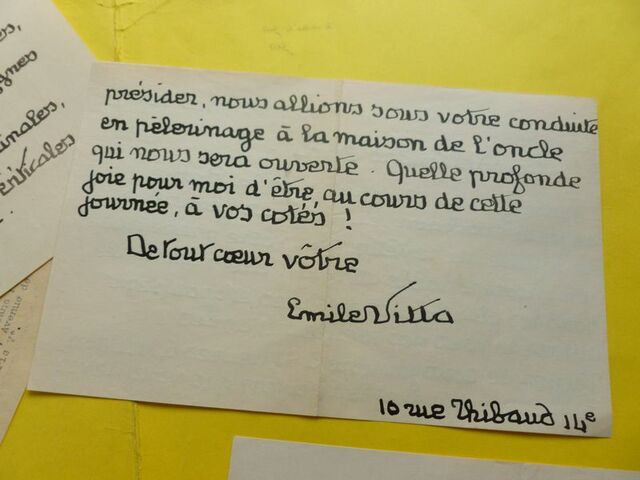 présider, nous allions sous votre conduite
en pèlerinage à la maison de l'oncle
qui nous sera ouverte. Quelle profonde
joie pour moi d'être, au cours de cette
journée, à vos cotés !
De tout cœur vôtre
Emile Vitta
10 rue Thibaud 14e